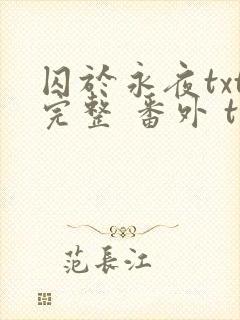 囚於永夜txt
完整 番外 t
范長江